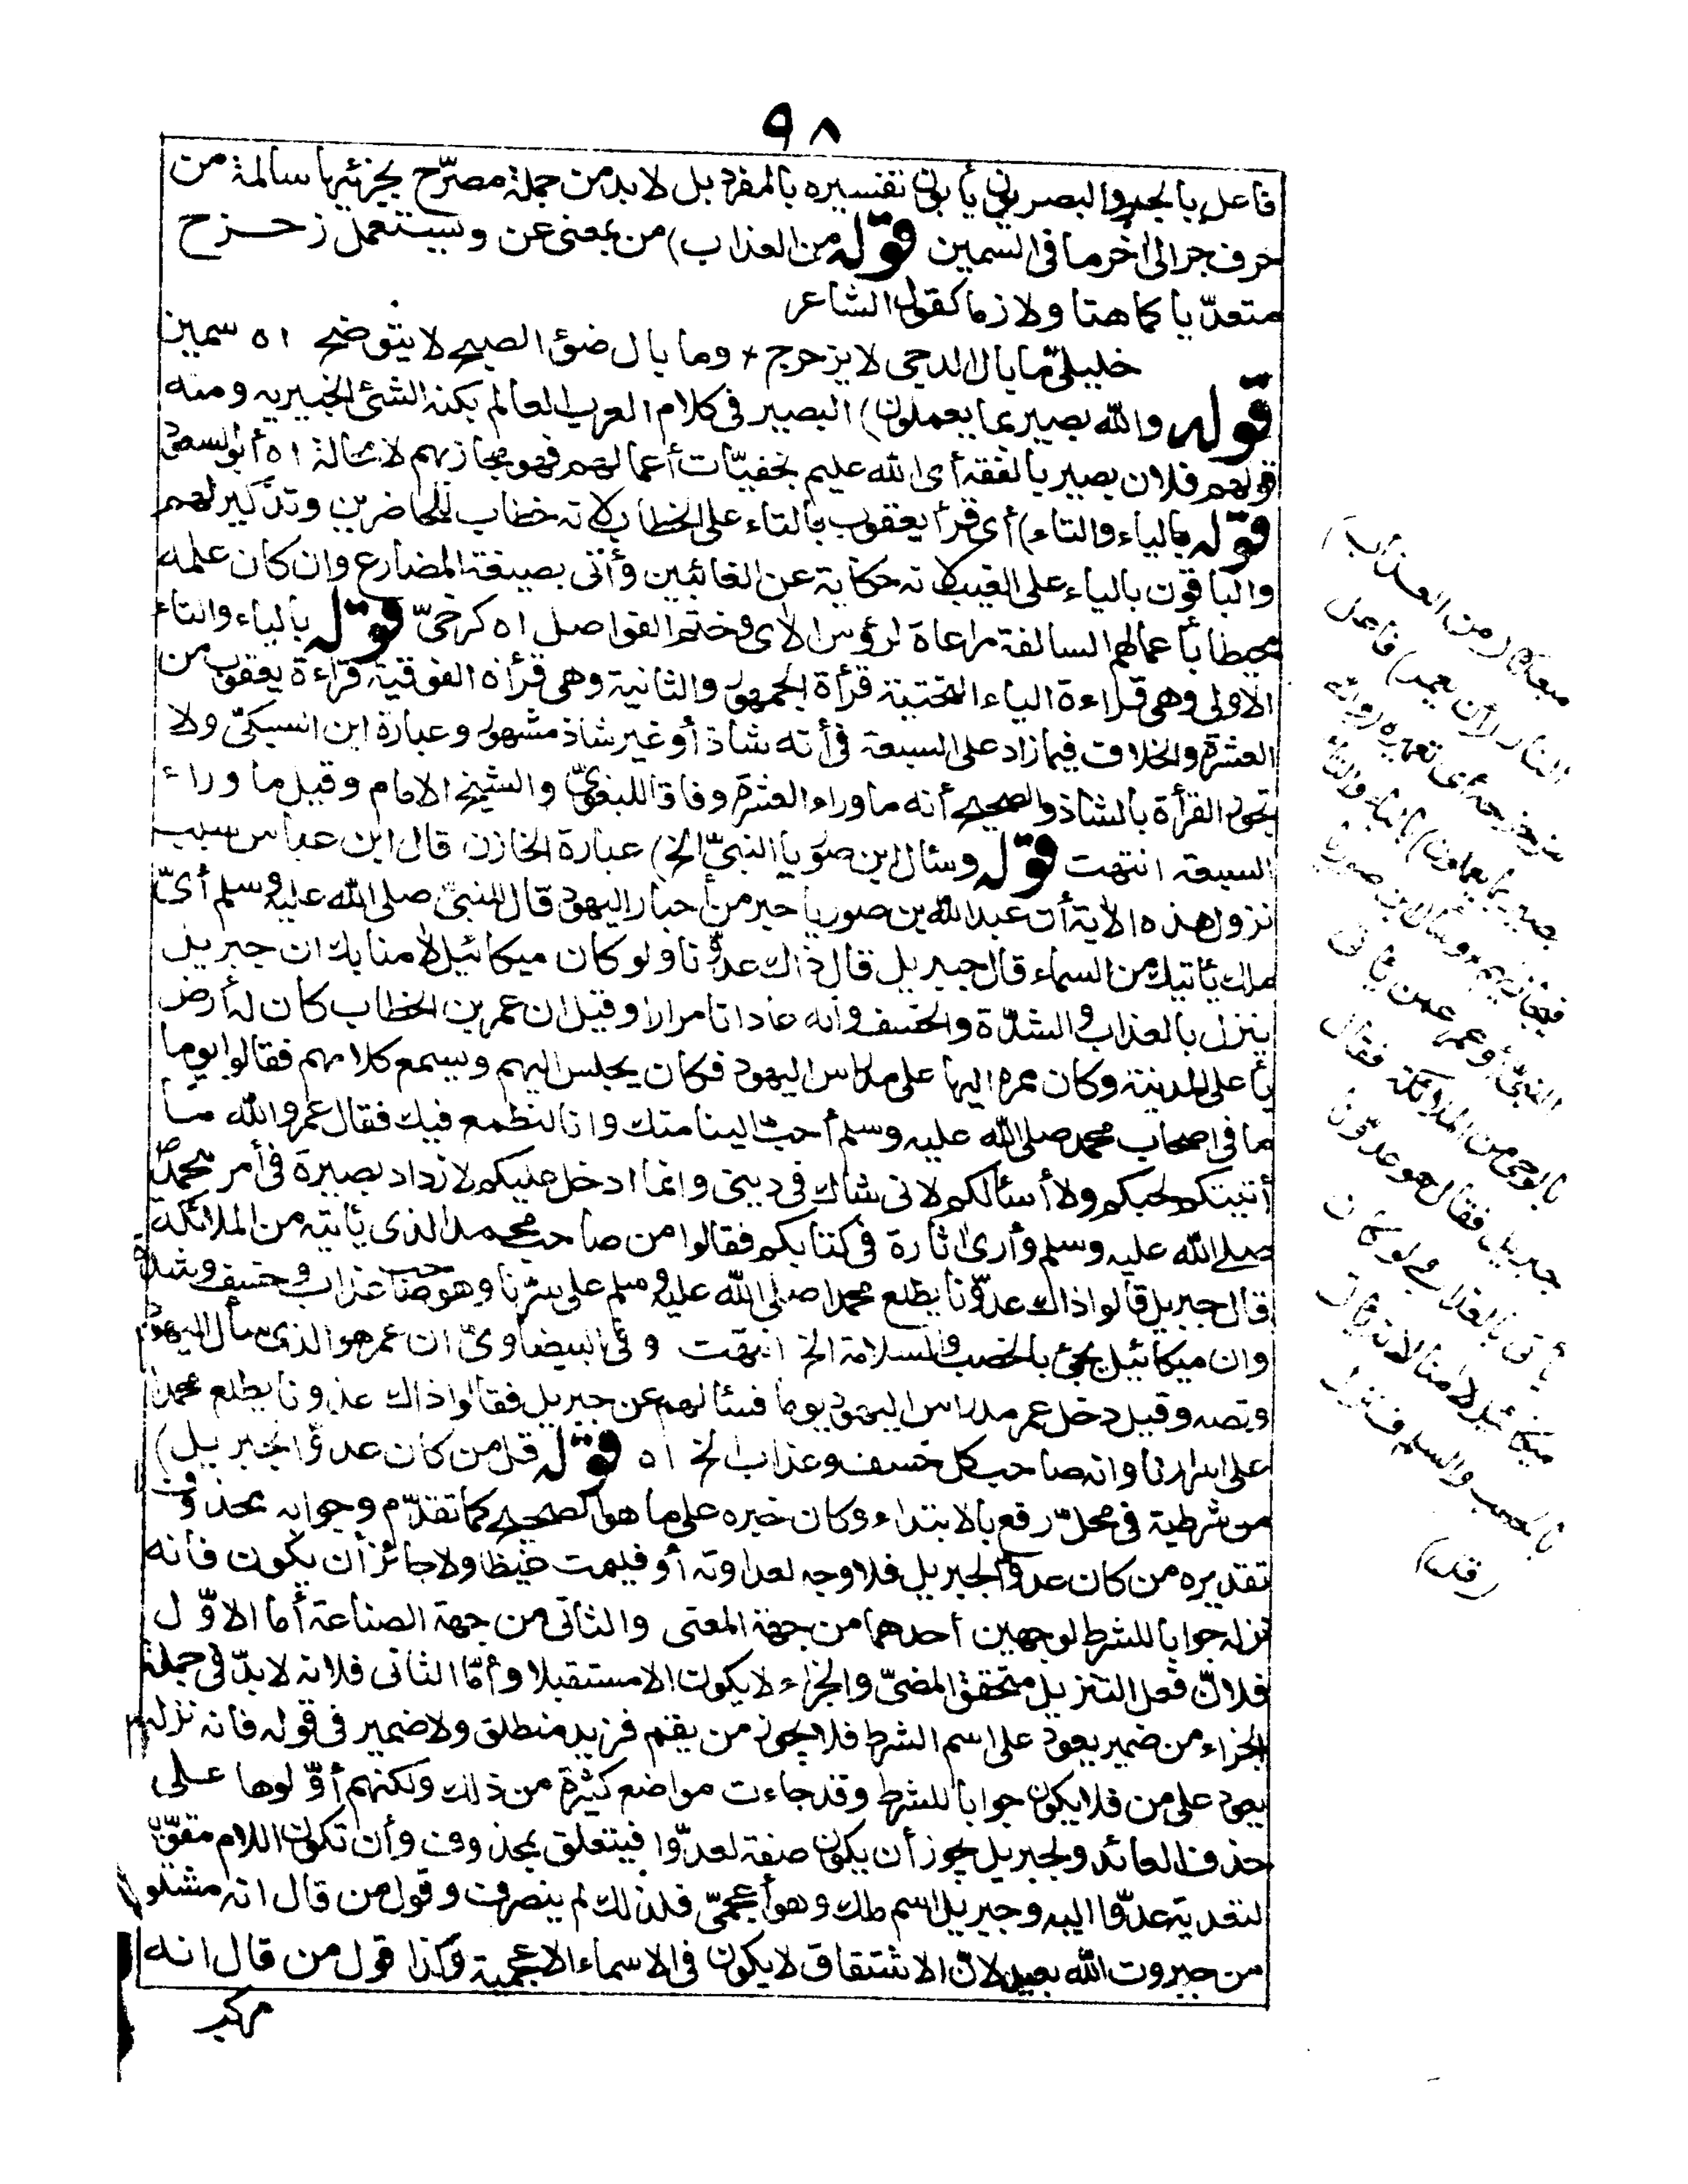 ٩٨
فاعل بالجر والبصريون يأبون تفسيره بالمفرد بل لا بد من جملة مصرّح بجزئيها سالمة من
حرف جر الى اٰخر ما فى السمين قوله من العذاب) من بمعنى عن ويستعمل زحزح
متعدّيا كما هنا ولازما كقول الشاعر
خليلىّ ما بال الدجى لا يزحزح * وما بال ضؤ الصبح لا يتوضح اه سمين
قوله والله بصير بما يعملون) البصير فى كلام العرب العالم بكنه الشئ الخبير به ومنه
قولهم فلان بصير بالفقه أى الله عليم بخفيّات أعمالهم فهو مجازيهم لا محالة اه أبو السعود
قوله بالياء والتاء) أى قرأ يعقوب بالتاء على الخطاب لانه خطاب للحاضرين وتذكير لهم
والباقون بالياء على الغيب لانه حكاية عن الغائبين وأتى بصيغة المضارع وان كان علمه
محيطا بأعمالهم السالفة مراعاة لرؤس الاى وختم الفواصل اه كرخىّ قوله بالياء والتاء
الاولى وهى قراءة الياء التحتية قرأة الجمهور والثانية وهى قرأة الفوقية قراءة يعقوب من
العشرة والخلاف فيما زاد على السبعة فى أنه شاذ أو غير شاذ مشهور وعبارة ابن السبكىّ ولا
تجوز القرأة بالشاذ والصحيح أنه ما وراء العشرة وفاقا للبغوىّ والشيخ الامام وقيل ما وراء
السبعة انتهت قوله وسئال ابن صوريا النبىّ الخ) عبارة الخازن قال ابن عباس سبب
نزول هذه الاية أن عبد الله بن صوريا حبر من أحبار اليهود قال للنبىّ صلى الله عليه وسلم أىّ
ملك يأتيك من السماء قال جبريل قال ذاك عدوّنا ولو كان ميكائيل لاٰمنا بك ان جبريل
ينزل بالعذاب والشدّة والخسف وانه عادانا مرارا وقيل ان عمر بن الخطاب كان له أرض
بأعلى المدينة وكان ممره اليها على مدراس اليهود فكان يجلس اليهم ويسمع كلامهم فقالوا يوما
ما فى اصحاب محمد صلى الله عليه وسلم أحبّ الينا منك وانا لنطمع فيك فقال عمر والله ما
أتيتكم لحبكم ولا أسئالكم لانى شاك فى دينى وانما ادخل عليكم لازداد بصيرة فى أمر محمد
صلى الله عليه وسلم وأرى اٰثاره فى كتابكم فقالوا من صاحب محمد الذى يأتيه من الملائكة
قال جبريل قالوا ذاك عدوّنا يطلع محمدا صلى الله عليه وسلم على سرّنا وهو صاحب عذاب وخسف وشدة
وان ميكائيل يجئ بالخصب والسلامة الخ انتهت وفى البيضاوىّ ان عمر هو الذى سأل اليهود
ونصه وقيل دخل عمر مدراس اليهود يوما فسئالهم عن جبريل فقالوا ذاك عدونا يطلع محمدا
على اسرارنا وانه صاحب كل خسف وعذاب الخ اه قوله قل من كان عدوّا لجبريل)
من شرطية فى محلّ رفع بالابتداء وكان خبره على ما هو الصحيح كما تقدّم وجوابه محذوف
تقديره من كان عدوّا لجبريل فلا وجه لعداوته أو فليمت غيظا ولا جائز أن يكون فانه
نزله جوابا للشرط لوجهين أحدهما من جهة المعنى والثانى من جهة الصناعة أما الاوّل
فلانّ فعل التنزيل متحقق المضىّ والجزاء لا يكون الا مستقبلا وأمّا الثانى فلانه لا بدّ فى جملة
الجزاء من ضمير يعود على اسم الشرط فلا يجوز من يقم فزيد منطلق ولا ضمير فى قوله فانه نزله
يعود على من فلا يكون جوابا للشرط وقد جاءت مواضع كثيرة من ذلك ولكنهم أوّلوها على
حذف العائد ولجبريل يجوز أن يكون صفة لعدوّا فيتعلق بمحذوف وأن تكون اللام مقوّيّة
لتعدية عدوّا اليه وجبريل اسم ملك وهو أعجمىّ فلذلك لم ينصرف وقول من قال انه مشتق
من جبروت الله بعيد لانّ الاشتقاق لا يكون فى الاسماء الاعجمية وكذا قول من قال انه
مركب
مبعده (من العذاب)
النار (أن يعمر) فاعل
مزحزحه أى تعميره (والله
بصير بما يعملون) بالياء والتاء
فيجازيهم * وسئال ابن صوريا
النبىّ أو عمر عمن يأتى
بالوحى من الملائكة فقال
جبريل فقال هو عدوّنا
يأتى بالعذاب ولو كان
ميكائيل لاٰمنا لانه يأتى
بالخصب والسلم فنزل
(قل)